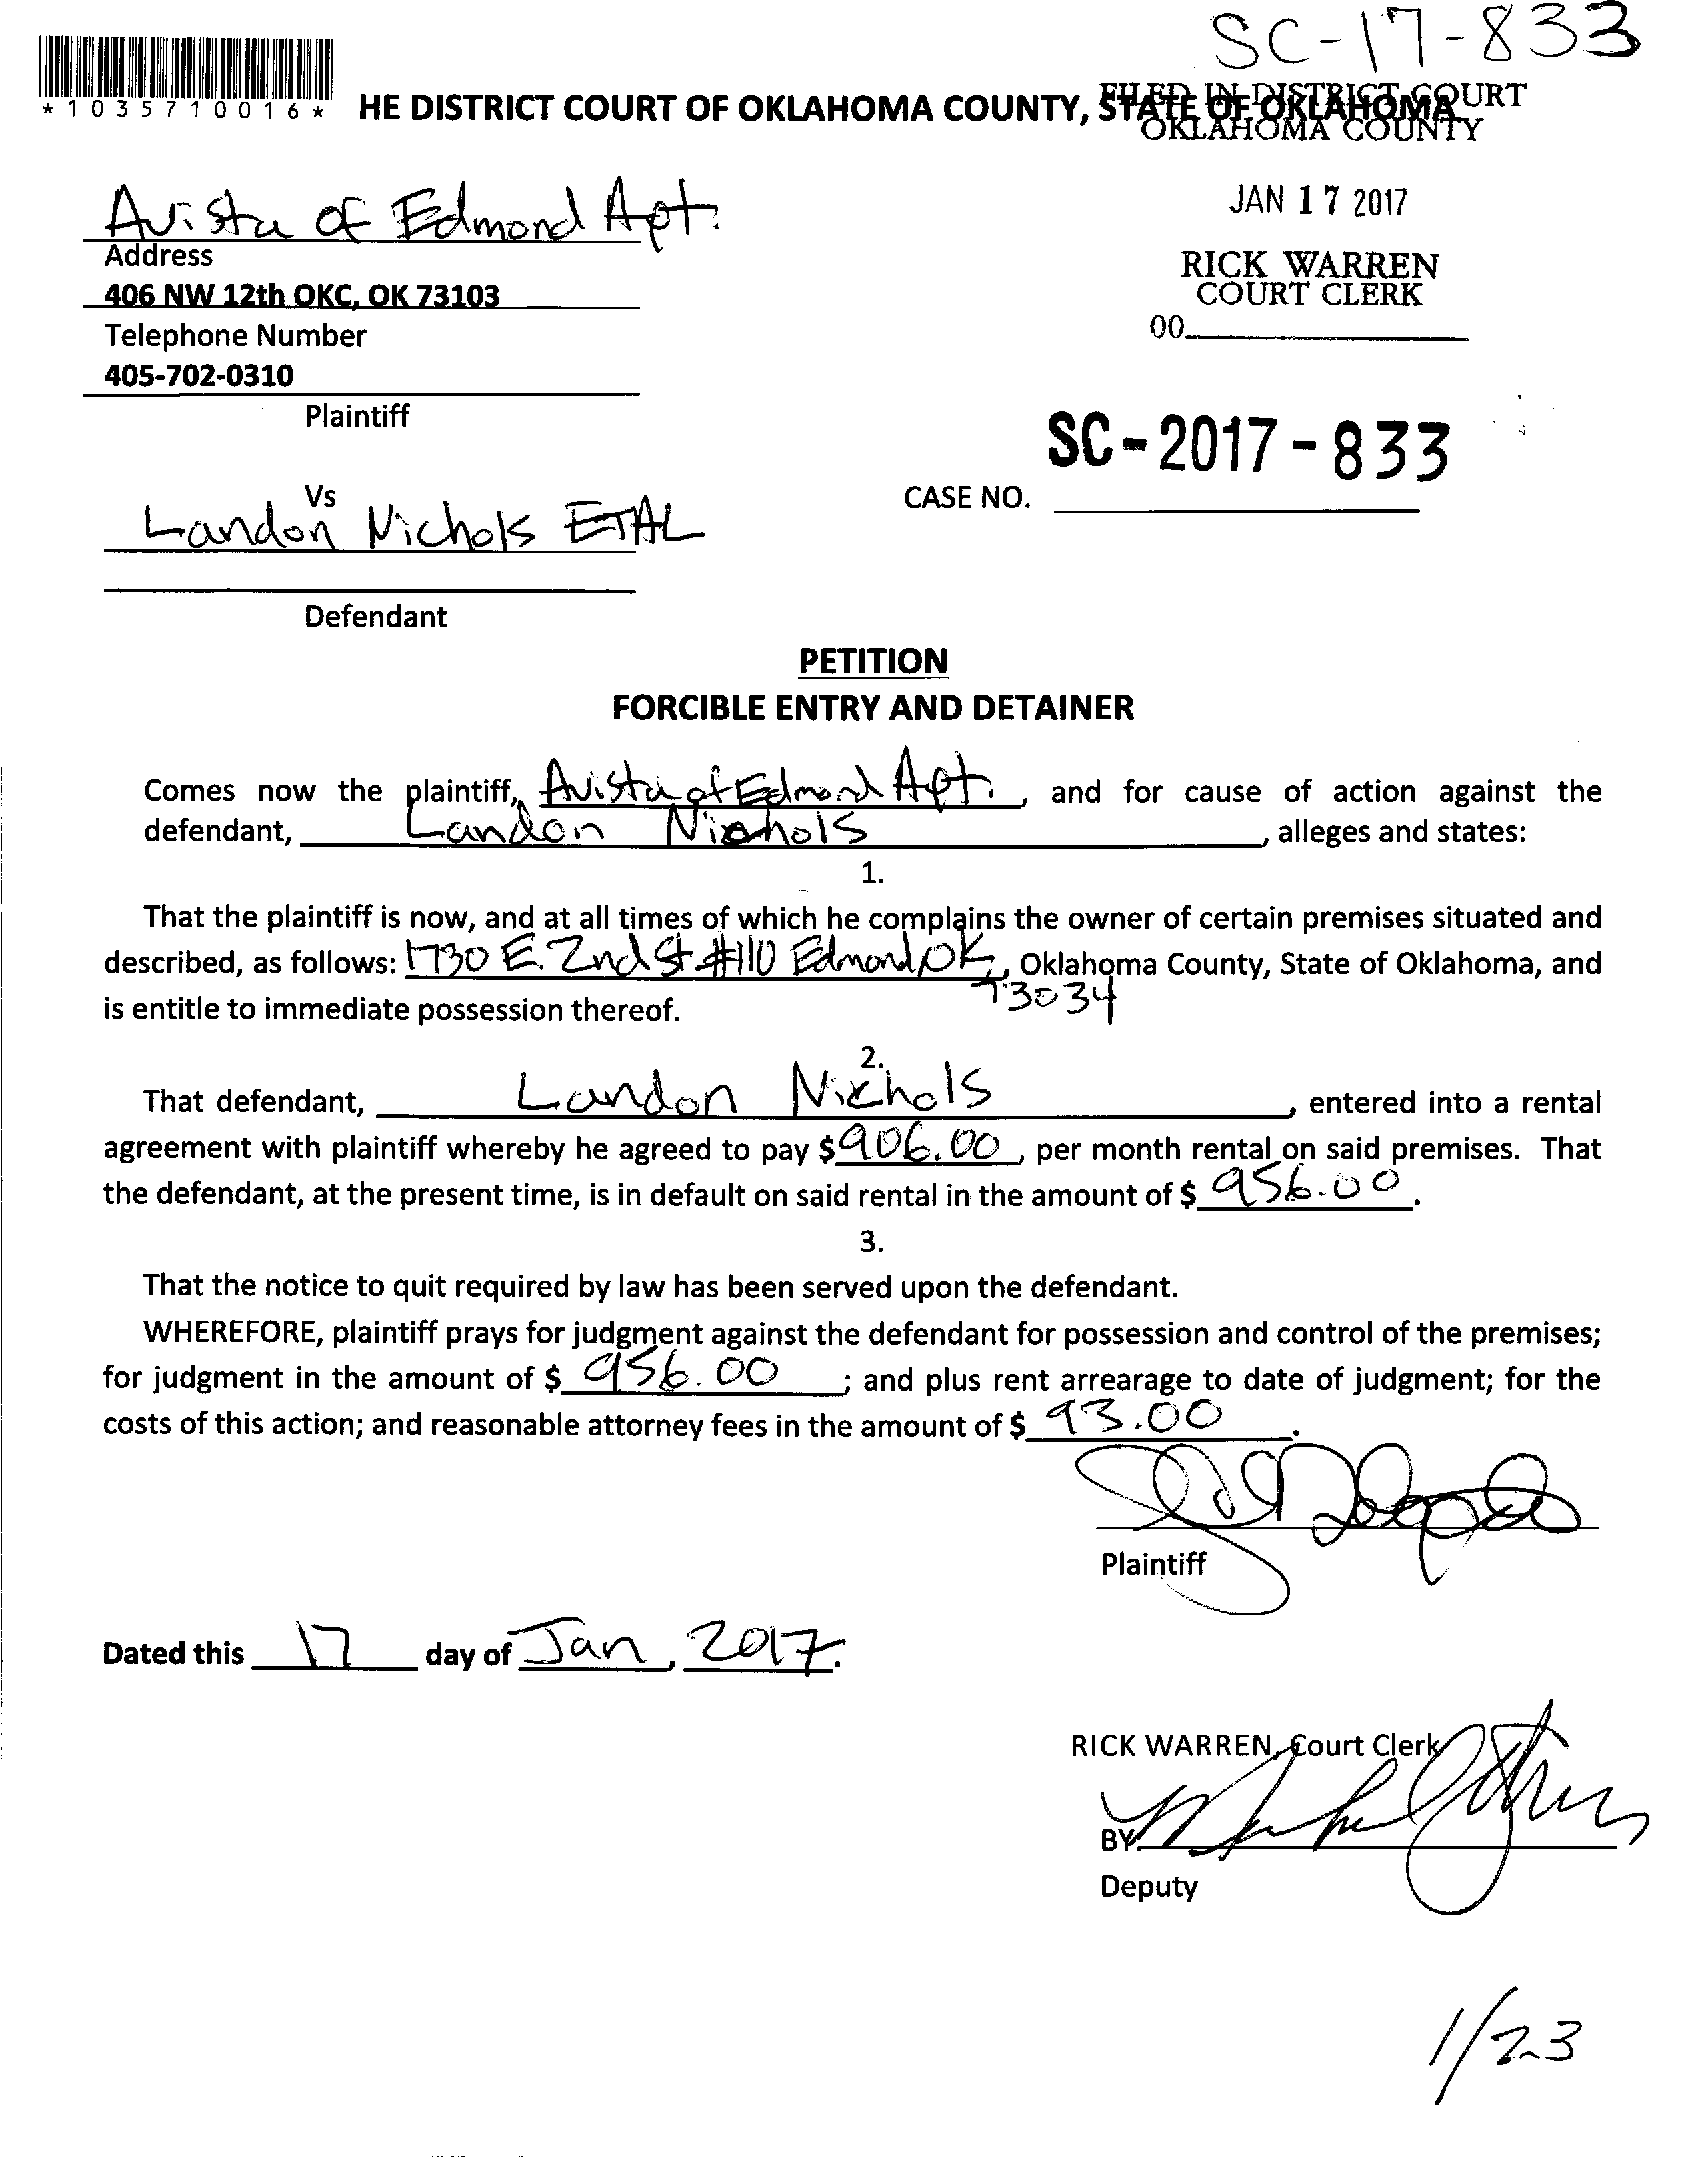 SC-17-833
*1035710016*
HE DISTRICT COURT OF OKLAHOMA COUNTY, STATE OF OKLAHOMA
FILED IN DISTRICT COURT
OKLAHOMA COUNTY
Avista of Edmond Apt.
JAN 17 2017
Address
RICK WARREN
406 NW 12th OKC, OK 73103
COURT CLERK
Telephone Number
00
405-702-0310
Plaintiff
SC-2017-833
Vs
CASE NO.
Landon Nichols ETAL
Defendant
PETITION
FORCIBLE ENTRY AND DETAINER
Comes now the plaintiff, Avista of Edmond Apt. , and for cause of action against the
defendant, Landon Nichols , alleges and states:
1.
That the plaintiff is now, and at all times of which he complains the owner of certain premises situated and
described, as follows: 1730 E. 2nd St #110 Edmond OK, , Oklahoma County, State of Oklahoma, and
73034
is entitle to immediate possession thereof.
2.
That defendant, Landon Nichols , entered into a rental
agreement with plaintiff whereby he agreed to pay $906.00 , per month rental on said premises. That
the defendant, at the present time, is in default on said rental in the amount of $ 956.00 .
3.
That the notice to quit required by law has been served upon the defendant.
WHEREFORE, plaintiff prays for judgment against the defendant for possession and control of the premises;
for judgment in the amount of $ 956.00 ; and plus rent arrearage to date of judgment; for the
costs of this action; and reasonable attorney fees in the amount of $ 93.00 .
Plaintiff
Dated this 17 day of Jan , 2017.
RICK WARREN, Court Clerk
BY
Deputy
1/23